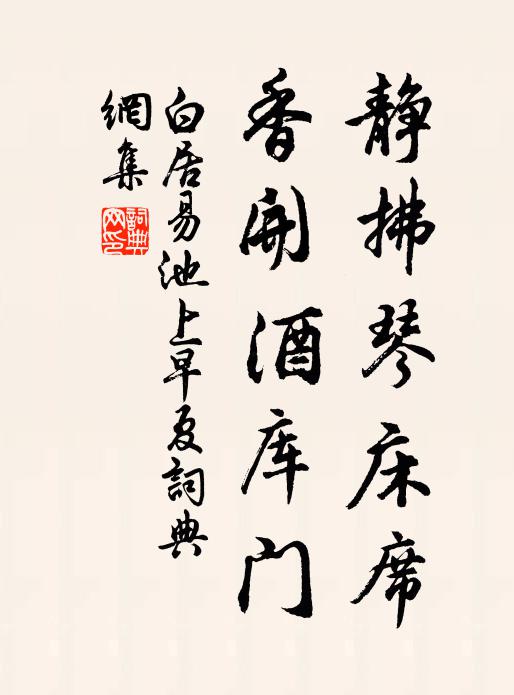 静拂琴床席
香開酒库门
白居易池上早夏詞典
網集
詞典网印